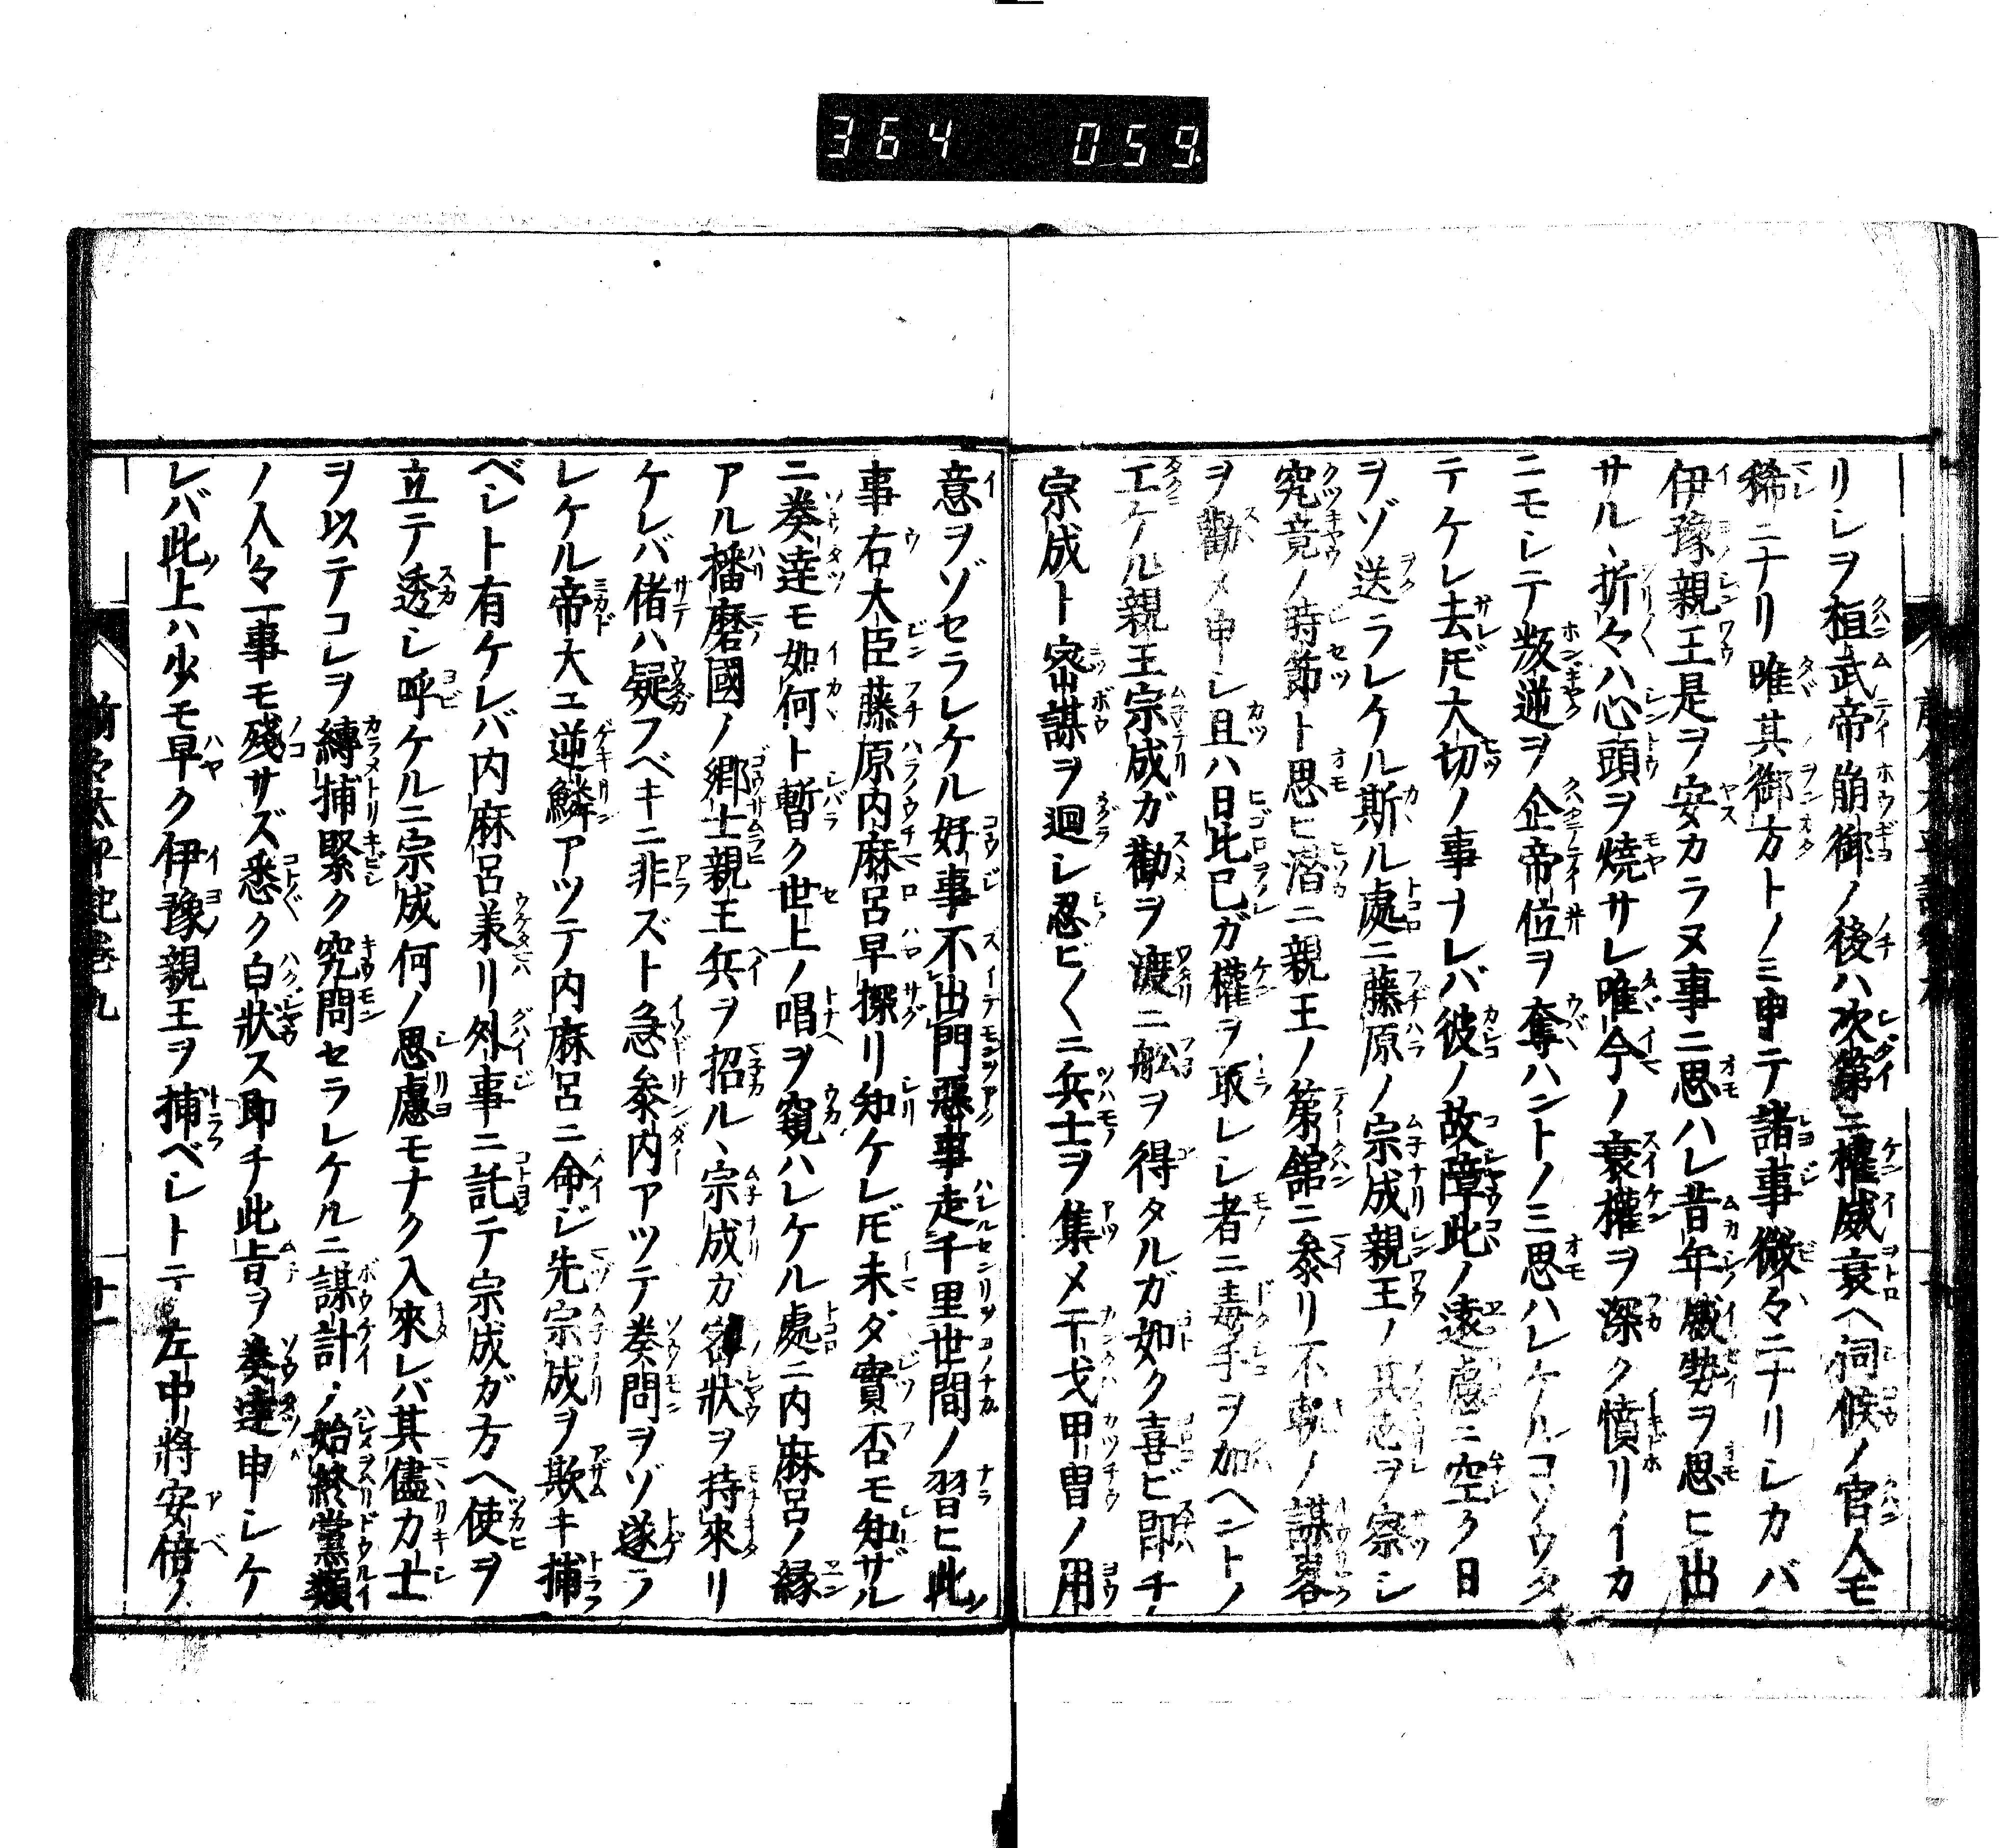 364 059
リシヲ桓武帝崩御ノ後ハ次第ニ權威衰ヘ祠候ノ官人モ
稀ニナリ唯其御方トノミ申テ諸事微々ニナリシカバ
伊豫親王是ヲ安カラヌ事ニ思ハレ昔年威勢ヲ思ヒ出
サル、折々ハ心頭ヲ燒サレ唯今ノ衰權ヲ深ク憤リイカ
ニモシテ叛逆ヲ企帝位ヲ奪ハントノミ思ハレケルコソウタ
テケレ去𪜈大切ノ事ナレバ彼ノ故障此ノ遠慮ニ空ク日
ヲゾ送ラレケル斯ル處ニ藤原ノ宗成親王ノ其志ヲ察シ
究竟ノ時節ト思ヒ潜ニ親王ノ第舘ニ參リ不軌ノ謀畧
ヲ勸メ申シ且ハ日比己ガ權ヲ取レシ者ニ毒手ヲ加ヘントノ
エケル親王宗成ガ勸ヲ渡ニ舩ヲ得タルガ如ク喜ビ即チ
宗成ト密謀ヲ廻シ忍ビ〱ニ兵士ヲ集メ干戈甲冑ノ用
意ヲゾセラレケル好事不出門惡事走千里世間ノ習ヒ此
事右大臣藤原内麻呂早探リ知ケレ𪜈未ダ實否モ知ザル
ニ奏達モ如何ト暫ク世上ノ唱ヲ窺ハレケル處ニ内麻呂ノ縁
アル播磨國ノ郷士親王兵ヲ招ル、宗成ガ密狀ヲ持來リ
ケレバ偖ハ疑フベキニ非ズト急參内アツテ奏問ヲゾ遂ラ
レケル帝大ニ逆鱗アツテ内麻呂ニ命ジ先宗成ヲ欺キ捕
ベシト有ケレバ内麻呂羕リ外事ニ託テ宗成ガ方ヘ使ヲ
立テ透シ呼ケルニ宗成何ノ思慮モナク入來レバ其儘力士
ヲ以テコレヲ縳捕緊ク究問セラレケルニ謀計ノ始終黨類
ノ人々一事モ殘サズ悉ク白狀ス即チ此旨ヲ奏達申シケ
レバ此上ハ少モ早ク伊豫親王ヲ捕ベシトテ左中將安倍ノ
前々太平記卷九
十一